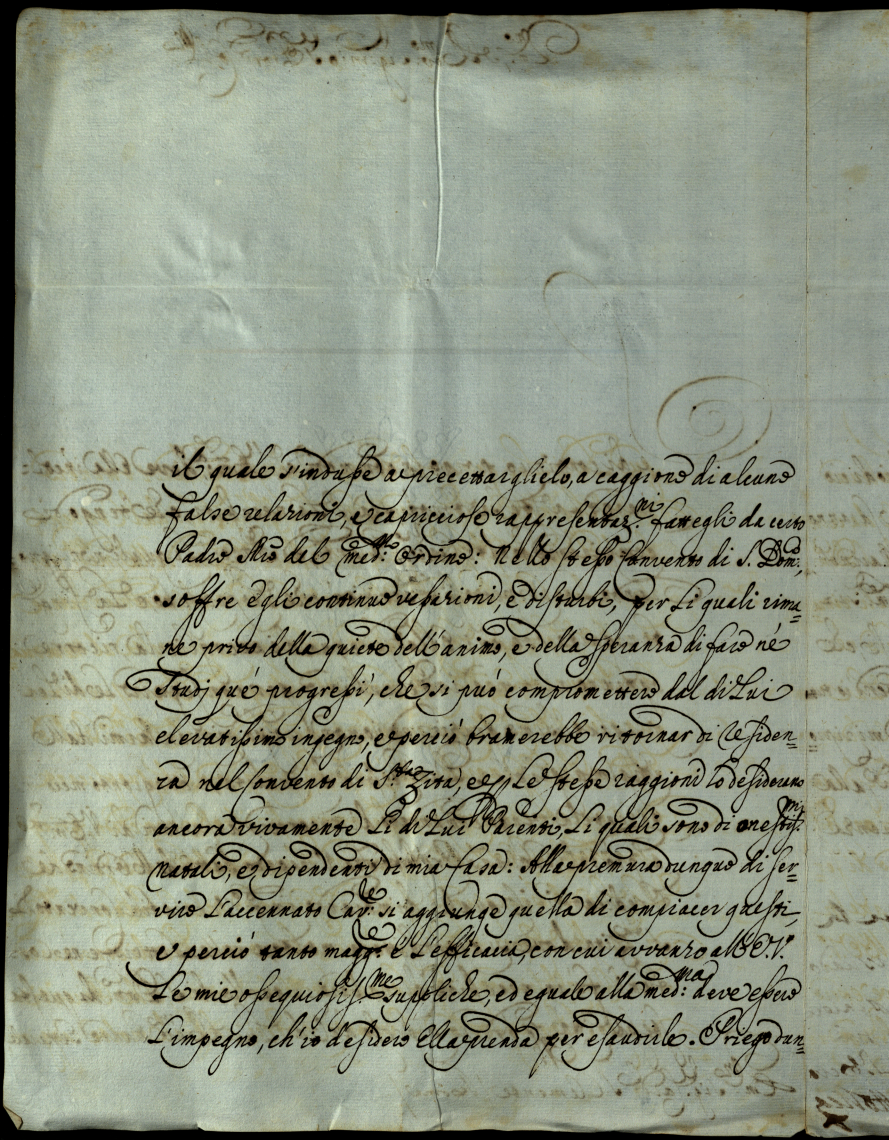 il quale s'indusse a precettarglielo, a caggione di alcune
false relazioni, e capricciose rappresentaz.ni fattegli da certo
Padre Mro del med.mo Ordine: Nello stesso Convento di S. Dom.co,
soffre egli continue vessazioni, e disturbi, per li quali rima=
ne privo della quiete dell'animo, e della speranza di fare né
Studj qué progressi, che si può compromettere dal di Lui
elevatissimo ingegno, e perciò bramerebbe ritornar di Residen=
za nel Convento di S.ta Zita, e p le stesse raggioni lo desiderano
ancora vivamente li di Lui Parenti, li quali sono di onestiss.mi
natali, e dipendenti di mia Casa: Alla premura dunque di ser=
vire l'accennato Cav.re si aggiunge quella di compiacer questi,
e perciò tanto magg.re è l'efficacia, con cui avvanzo all'E.V.
le mie ossequiosiss.me suppliche, ed eguale alla med.ma deve essere
l'impegno, ch'io desidero Ella prenda per esaudirle. Priego dun=